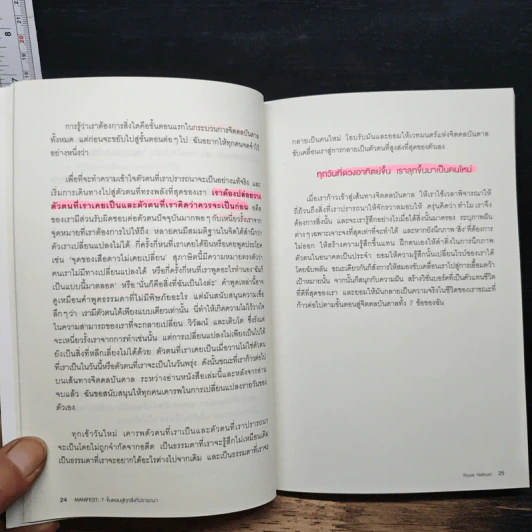 การรู้ว่าเราต้องการสิ่งใดคือขั้นตอนแรกในกระบวนการจิตดลบันดาล
ทั้งหมด แต่ก่อนจะขยับไปสู่ขั้นตอนต่อๆ ไป ฉันอยากให้ทุกคนจดจำไว้
อย่างหนึ่งว่า
เพื่อที่จะทำความเข้าใจตัวตนที่เราปรารถนาจะเป็นอย่างแท้จริง และ
เริ่มการเดินทางไปสู่ตัวตนที่ทรงพลังที่สุดของเรา เราต้องปล่อยวาง
ตัวตนที่เราเคยเป็นและตัวตนที่เราคิดว่าควรจะเป็นก่อน อดีต
ของเรามีส่วนรับผิดชอบต่อตัวตนปัจจุบันมากพอๆ กับเหนี่ยวรั้งเราจาก
จุดหมายที่เราต้องการไปให้ถึง หลายคนมีสมมติฐานในจิตใต้สำนึกว่า
ตัวเราเปลี่ยนแปลงไม่ได้ กี่ครั้งกี่หนที่เราเคยได้ยินหรือเคยพูดประโยค
เช่น 'จุดของเสือดาวไม่เคยเปลี่ยน' สุภาษิตนี้มีความหมายตรงตัวว่า
คนเราไม่มีทางเปลี่ยนแปลงได้ หรือกี่ครั้งกี่หนที่เราพูดอะไรทำนอง 'ฉันก็
เป็นแบบนี้มาตลอด' หรือ 'นั่นก็คือสิ่งที่ฉันเป็นไงล่ะ' คำพูดเหล่านี้อาจ
ดูเหมือนคำพูดธรรมดาที่ไม่มีพิษภัยอะไร แต่มันสนับสนุนความเชื่อ
ลึกๆ ว่า เรามีตัวตนได้เพียงแบบเดียวเท่านั้น นี่ทำให้เกิดความไม่ไว้วางใจ
ในความสามารถของเราที่จะกลายเปลี่ยน วิวัฒน์ และเติบโต ซึ่งรังแต่
จะเหนี่ยวรั้งเราจากการทำเช่นนั้น แต่การเปลี่ยนแปลงไม่เพียงเป็นไปได้
ยังเป็นสิ่งที่หลีกเลี่ยงไม่ได้ด้วย ตัวตนที่เราเคยเป็นเมื่อวานไม่ใช่ตัวตน
ที่เราเป็นในวันนี้หรือตัวตนที่เราจะเป็นในวันพรุ่ง ดังนั้นขณะที่เราก้าวต่อไป
บนเส้นทางจิตดลบันดาล ระหว่างอ่านหนังสือเล่มนี้และหลังจากอ่าน
จบแล้ว ฉันขอสนับสนุนให้ทุกคนเคารพในการเปลี่ยนแปลงรายวันของ
ตัวเอง
ทุกเช้าวันใหม่ เคารพตัวตนที่เราเป็นและตัวตนที่เราปรารถนา
จะเป็นโดยไม่ถูกจำกัดจากอดีต เป็นธรรมดาที่เราจะรู้สึกไม่เหมือนเดิม
เป็นธรรมดาที่เราจะอยากได้อะไรต่างไปจากเดิม และเป็นธรรมดาที่เราจะ
24 MANIFEST: 7 ขั้นตอนสู่ทุกสิ่งที่ปรารถนา
กลายเป็นคนใหม่ โอบรับมันและยอมให้เวทมนตร์แห่งจิตดลบันดาล
ขับเคลื่อนเราสู่การกลายเป็นตัวตนที่สูงส่งที่สุดของตัวเอง
ทุกวันที่ดวงอาทิตย์ขึ้น เราลุกขึ้นมาเป็นคนใหม่
เมื่อเราก้าวเข้าสู่เส้นทางจิตดลบันดาล ให้เราใช้เวลาพิจารณาให้
ถี่ถ้วนถึงสิ่งที่เราปรารถนาให้จักรวาลมอบให้ ครุ่นคิดว่า ทำไม เราจึง
ต้องการสิ่งนั้น และจะรู้สึกอย่างไรเมื่อได้สิ่งนั้นมาครอง ระบุภาพฝัน
ต่างๆ เฉพาะเจาะจงที่สุดเท่าที่จะทำได้ และหากยังนึกภาพ 'สิ่ง' ที่ต้องการ
ไม่ออก ให้สร้างความรู้สึกขึ้นแทน ฝึกตนเองให้ดำดิ่งในการนึกภาพ
ตัวตนในอนาคตเป็นประจำ ยอมให้ความรู้สึกนั้นเปลี่ยนไปเรื่อยๆ ได้
โดยฉับพลัน ขณะเดียวกันก็สั่งการให้สมองขับเคลื่อนเราไปสู่การเอื้อมคว้า
เป้าหมายนั้น จากนั้นก็สนุกกับความฝัน สร้างวิชันบอร์ดที่เป็นตัวแทนชีวิต
ที่ดีที่สุดของเรา และยอมให้มันกลายเป็นความจริงในชีวิตของเราขณะที่
ก้าวต่อไปตามขั้นตอนสู่จิตดลบันดาลทั้ง 7 ข้อของฉัน
Roxie Nafousi 25